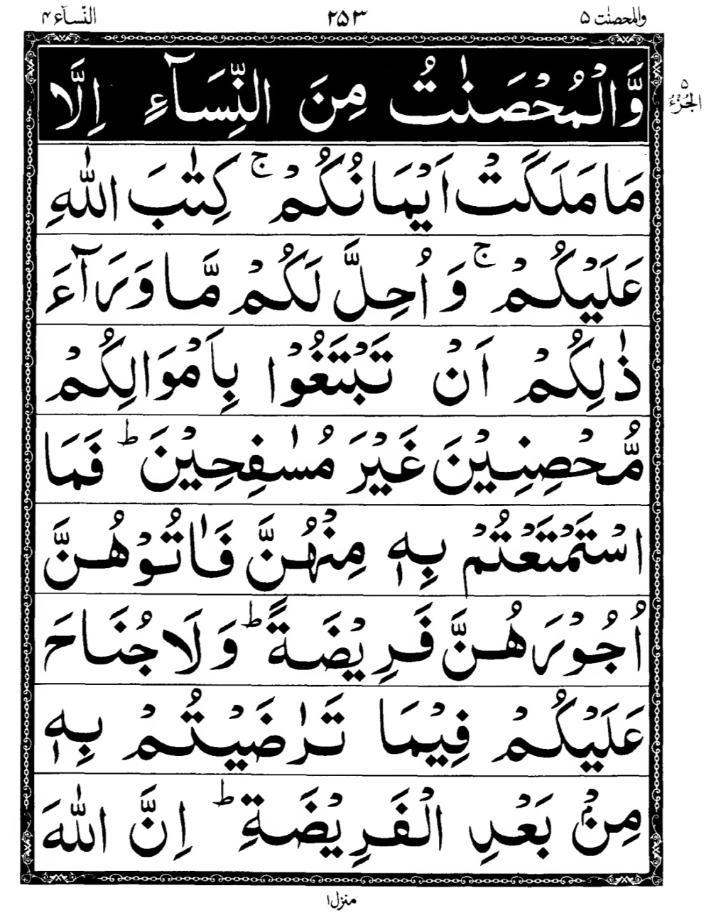 والمحصنٰت ۵ ۲۵۳ النسآء ۴
وَّالْمُحْصَنٰتُ مِنَ النِّسَآءِ اِلَّا
۵
الجزء
مَا مَلَكَتْ اَيْمَانُكُمْ ۚ كِتٰبَ اللّٰهِ
عَلَيْكُمْ ۚ وَ اُحِلَّ لَكُمْ مَّا وَرَآءَ
ذٰلِكُمْ اَنْ تَبْتَغُوْا بِاَمْوَالِكُمْ
مُّحْصِنِيْنَ غَيْرَ مُسٰفِحِيْنَ ؕ فَمَا
اسْتَمْتَعْتُمْ بِهٖ مِنْهُنَّ فَاٰتُوْهُنَّ
اُجُوْرَهُنَّ فَرِيْضَةً ؕ وَلَا جُنَاحَ
عَلَيْكُمْ فِيْمَا تَرٰضَيْتُمْ بِهٖ
مِنْۢ بَعْدِ الْفَرِيْضَةِ ؕ اِنَّ اللّٰهَ
منزل ۱